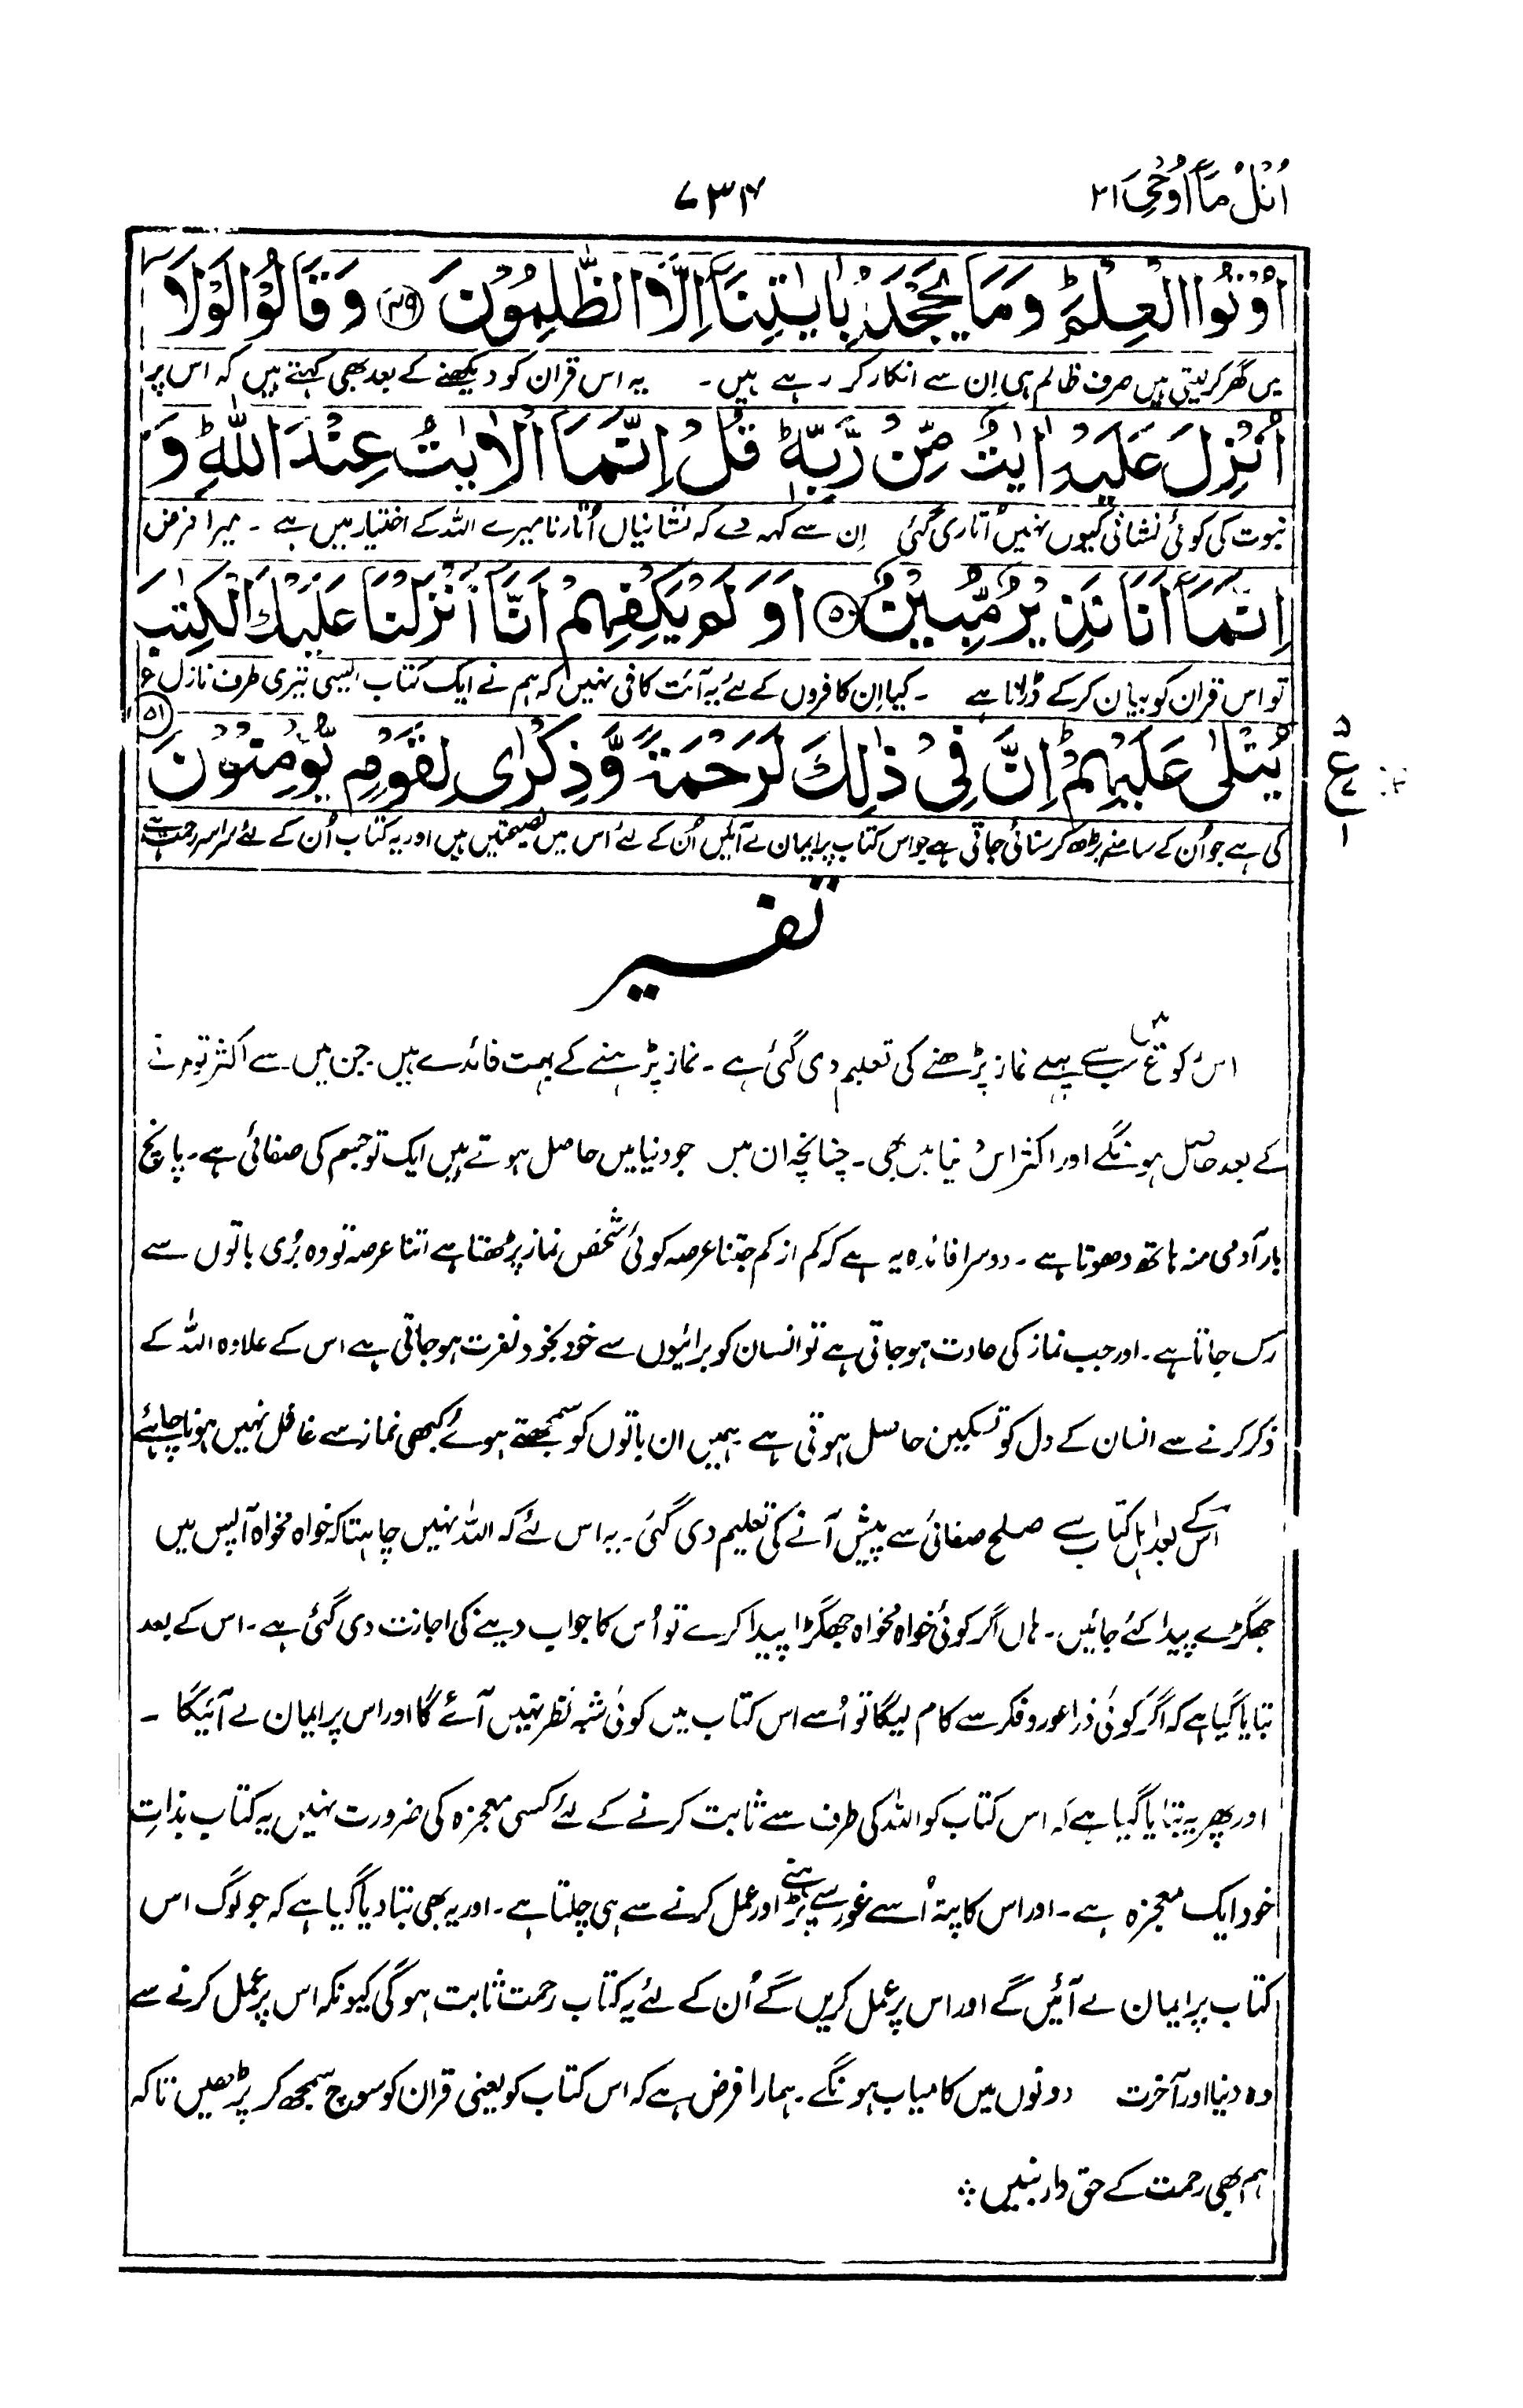 اُتْلُ مَاۤ اُوْحِیَ ۲۱
۷۳۴
اُوْتُوا الْعِلْمَ ؕ وَمَا یَجْحَدُ بِاٰیٰتِنَاۤ اِلَّا الظّٰلِمُوْنَ ﴿۴۹﴾ وَقَالُوْا لَوْلَاۤ
میں گھر کر لیتی ہیں صرف ظالم ہی اِن سے انکار کر رہے ہیں۔ یہ اس قران کو دیکھنے کے بعد بھی کہتے ہیں کہ اس پر
اُنْزِلَ عَلَیْهِ اٰیٰتٌ مِّنْ رَّبِّهٖ ؕ قُلْ اِنَّمَا الْاٰیٰتُ عِنْدَ اللّٰهِ ؕ وَ
نبوت کی کوئی نشانی کیوں نہیں اُتاری گئی اِن سے کہہ دے کہ نشانیاں اُتارنا میرے اللہ کے اختیار میں ہے ۔ میرا فرض
اِنَّمَاۤ اَنَا نَذِیْرٌ مُّبِیْنٌ ﴿۵۰﴾ اَوَلَمْ یَكْفِهِمْ اَنَّاۤ اَنْزَلْنَا عَلَیْكَ الْكِتٰبَ
تو اس قران کو بیان کرکے ڈرانا ہے ۔ کیا اِن کافروں کے لئے یہ آئت کافی نہیں کہ ہم نے ایک کتاب ایسی تیری طرف نازل
یُتْلٰی عَلَیْهِمْ ؕ اِنَّ فِیْ ذٰلِكَ لَرَحْمَةً وَّذِكْرٰی لِقَوْمٍ یُّؤْمِنُوْنَ ﴿۵۱﴾
۵ ع ۱
کی ہے جو اُن کے سامنے پڑھ کر سنائی جاتی ہے جو اس کتاب پر ایمان لے آئیں اُن کے لئے اس میں نصیحتیں ہیں اور یہ کتاب اُن کے لئے سراسر رحمت ہے
تفسیر
اس رکوع میں سب سے پہلے نماز پڑھنے کی تعلیم دی گئی ہے ۔ نماز پڑہنے کے بہت فائدے ہیں۔ جن میں سے اکثر تو مرنے
کے بعد حاصل ہونگے اور اکثر اس دنیا میں بھی۔ چنانچہ ان میں جو دنیا میں حاصل ہوتے ہیں ایک تو جسم کی صفائی ہے۔ پانچ
بار آدمی منہ ہاتھ دھوتا ہے ۔ دوسرا فائدہ یہ ہے کہ کم از کم جتنا عرصہ کوئی شخص نماز پڑھتا ہے اتنا عرصہ تو وہ بُری باتوں سے
رک جاتا ہے۔ اور جب نماز کی عادت ہو جاتی ہے تو انسان کو برائیوں سے خود بخود نفرت ہو جاتی ہے اس کے علاوہ اللہ کے
ذکر کرنے سے انسان کے دل کو تسکین حاصل ہوتی ہے ہمیں ان باتوں کو سمجھتے ہوئے کبھی نماز سے غافل نہیں ہونا چاہئے
اس کے بعد اہل کتاب سے صلح صفائی سے پیش آنے کی تعلیم دی گئی۔ یہ اس لئے کہ اللہ نہیں چاہتا کہ خواہ مخواہ آپس میں
جھگڑے پیدا کئے جائیں۔ ہاں اگر کوئی خواہ مخواہ جھگڑا پیدا کرے تو اُس کا جواب دینے کی اجازت دی گئی ہے۔ اس کے بعد
بتایا گیا ہے کہ اگر کوئی ذرا غور و فکر سے کام لیگا تو اُسے اس کتاب میں کوئی شبہ نظر نہیں آئے گا اور اس پر ایمان لے آئیگا ۔
اور پھر یہ بتایا گیا ہے کہ اس کتاب کو اللہ کی طرف سے ثابت کرنے کے لئے کسی معجزہ کی ضرورت نہیں یہ کتاب بذاتِ
خود ایک معجزہ ہے۔ اور اس کا پتہ اُسے غور سے پڑہنے اور عمل کرنے سے ہی چلتا ہے۔ اور یہ بھی بتا دیا گیا ہے کہ جو لوگ اس
کتاب پر ایمان لے آئیں گے اور اس پر عمل کریں گے اُن کے لئے یہ کتاب رحمت ثابت ہوگی کیونکہ اس پر عمل کرنے سے
وہ دنیا اور آخرت دونوں میں کامیاب ہونگے۔ ہمارا فرض ہے کہ اس کتاب کو یعنی قران کو سوچ سمجھ کر پڑھیں تاکہ
ہم بھی رحمت کے حق دار بنیں ؞